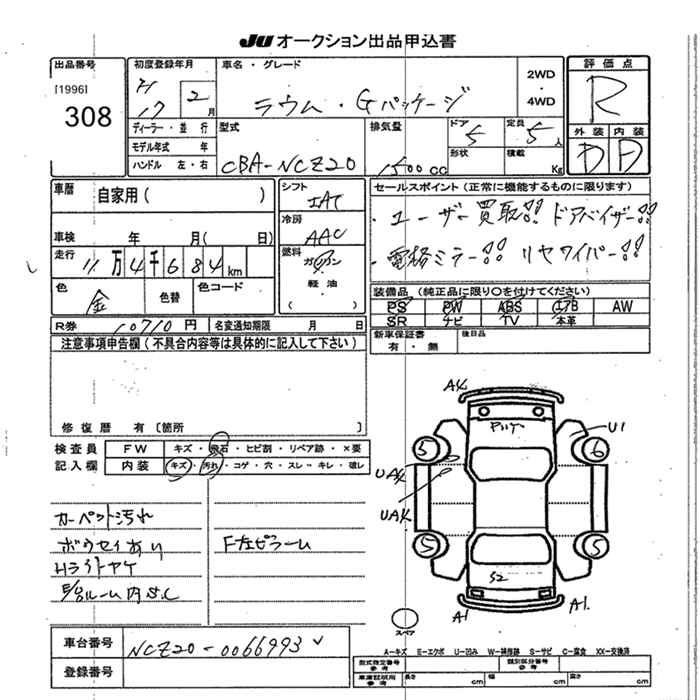 JU オークション出品申込書
出品番号
[1996]
308
初度登録年月
H 17 2 月
車名・グレード
ラウム・Gパッケージ
2WD
・
4WD
評価点
R
外装 内装
D D
ディーラー・並行
モデル年式 年
ハンドル 左・右
型式
CBA-NCZ20
排気量
1500 CC
ドア
5
定員
5 人
形状
積載
Kg
車歴
自家用( )
車検 年 月( 日)
走行
11万4千684 km
色
金
色替
色コード
シフト
IAT
冷房
AAC
燃料
ガソリン
・
軽油
( )
セールスポイント(正常に機能するものに限ります)
・ユーザー買取!! ドアバイザー!!
・電格ミラー!! リヤワイパー!!
装備品(純正品に限り○を付けてください)
PS PW ABS エアB AW
SR ナビ TV 本革
R券 10710円 名変通知期限 月 日
新車保証書
有・無
後日品
注意事項申告欄(不具合内容等は具体的に記入して下さい)
修復歴 有〔箇所 〕
検査員
記入欄
FW キズ・飛石・ヒビ割・リペア跡・×要
内装 キズ・汚れ・コゲ・穴・スレ・キレ・破レ
カーペット汚れ
ボウセイあり
Hライトヤケ
F左ピラーム
A4
U1
5
6
UA4
UA4
5
5
S2
A1
A1.
スペア
車台番号 NCZ20-0066993
登録番号
A−キズ E−エクボ U−凹み W−補修跡 S−サビ C−腐食 XX−交換済
型式指定番号
参考
類別区分番号
参考
車庫証明用
参考
長さ cm 幅 cm 高さ cm